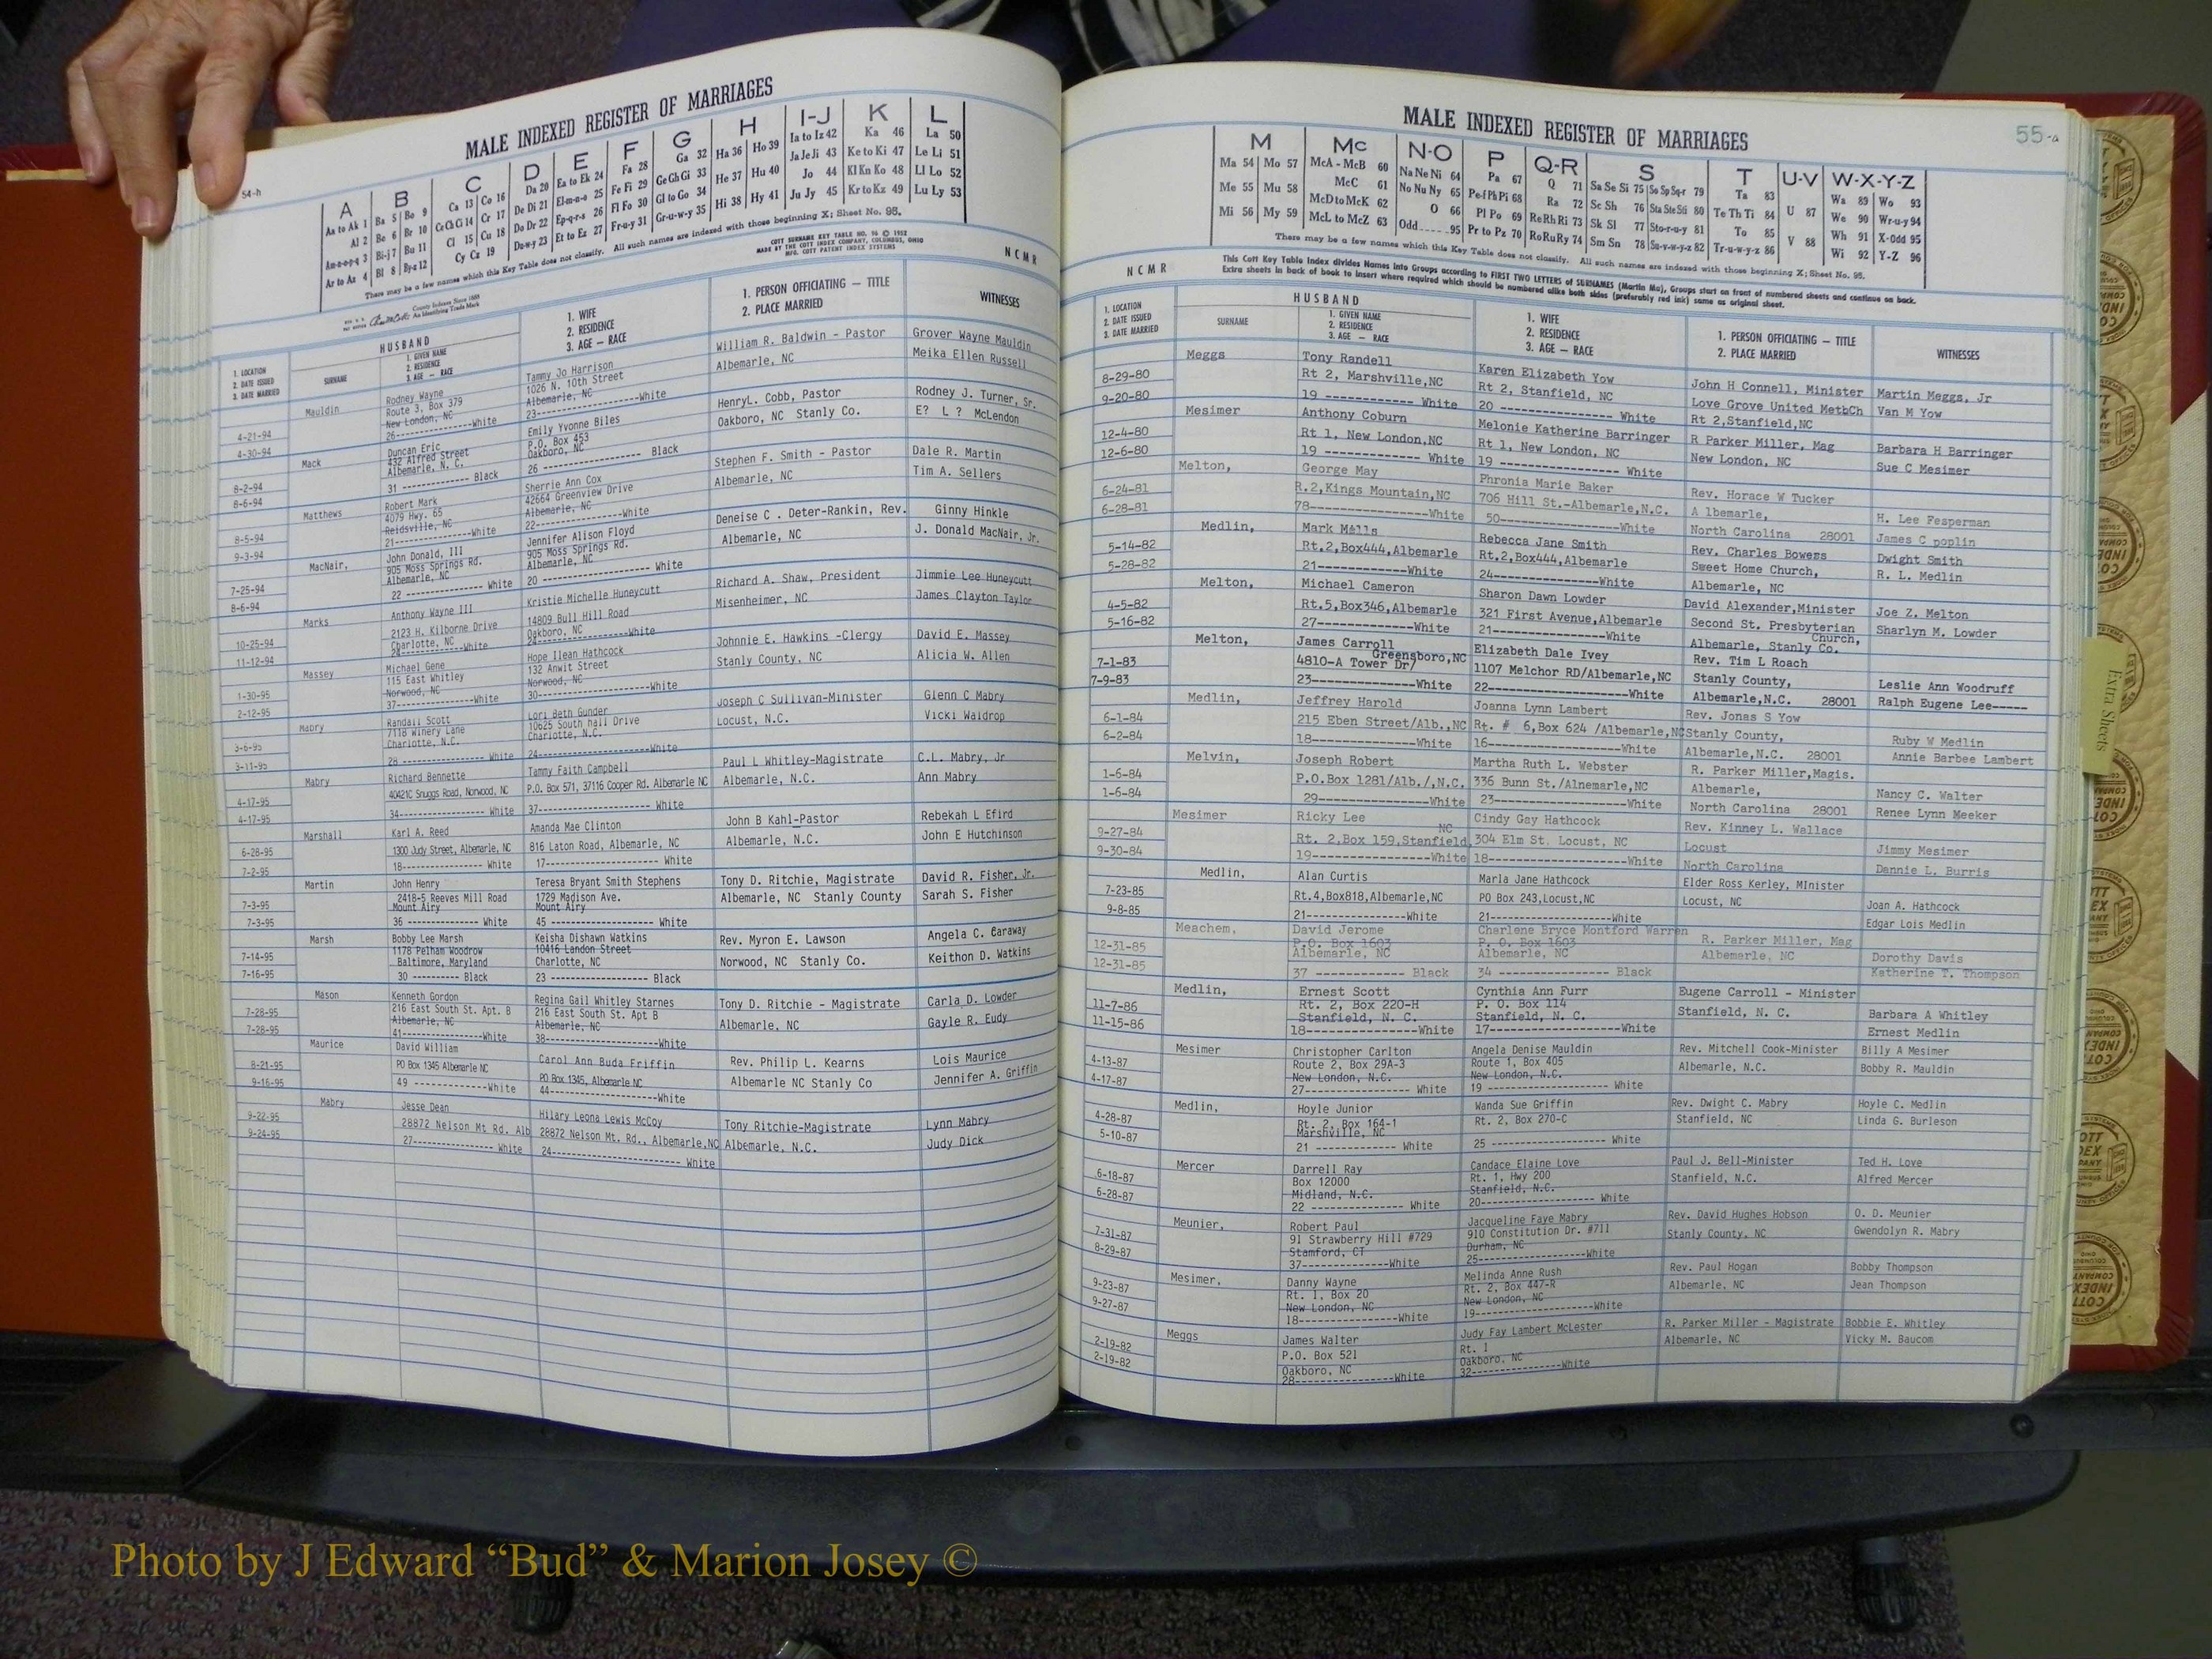 54-h
MALE INDEXED REGISTER OF MARRIAGES
A
Aa to Ak 1
Al 2
Am-n-o-p-q 3
Ar to Az 4
B
Ba 5 Bo 9
Be 6 Br 10
Bi-j 7 Bu 11
Bl 8 By-z 12
C
Ca 13 Co 16
Ce Ch Ci 14 Cr 17
Cl 15 Cu 18
Cy Cz 19
D
Da 20
De Di 21
Do Dr 22
Du-w-y 23
E
Ea to Ek 24
El-m-n-o 25
Ep-q-r-s 26
Et to Ez 27
F
Fa 28
Fe Fi 29
Fl Fo 30
Fr-u-y 31
G
Ga 32
Ge Gh Gi 33
Gl to Go 34
Gr-u-w-y 35
H
Ha 36 Ho 39
He 37 Hu 40
Hi 38 Hy 41
I-J
Ia to Iz 42
Ja Je Ji 43
Jo 44
Ju Jy 45
K
Ka 46
Ke to Ki 47
Kl Kn Ko 48
Kr to Kz 49
L
La 50
Le Li 51
Ll Lo 52
Lu Ly 53
There may be a few names which this Key Table does not classify. All such names are indexed with those beginning X; Sheet No. 95.
COTT SURNAME KEY TABLE NO. 96 © 1952
MADE BY THE COTT INDEX COMPANY, COLUMBUS, OHIO
MFG. COTT PATENT INDEX SYSTEMS
County Indexes Since 1888
An Identifying Trade Mark
N C M R
1. LOCATION
2. DATE ISSUED
3. DATE MARRIED
HUSBAND
SURNAME
1. GIVEN NAME
2. RESIDENCE
3. AGE — RACE
1. WIFE
2. RESIDENCE
3. AGE — RACE
1. PERSON OFFICIATING — TITLE
2. PLACE MARRIED
WITNESSES
Mauldin
4-21-94
4-30-94
Rodney Wayne
Route 3, Box 379
New London, NC
26------------White
Tammy Jo Harrison
1026 N. 10th Street
Albemarle, NC
23----------------White
William R. Baldwin - Pastor
Albemarle, NC
Grover Wayne Mauldin
Meika Ellen Russell
Mack
8-2-94
8-6-94
Duncan Eric
432 Alfred Street
Albemarle, N. C.
31 ------------- Black
Emily Yvonne Biles
P.O. Box 453
Oakboro, NC
26 ------------------ Black
HenryL. Cobb, Pastor
Oakboro, NC Stanly Co.
Rodney J. Turner, Sr.
E? L ? McLendon
Matthews
8-5-94
9-3-94
Robert Mark
4079 Hwy. 65
Reidsville, NC
21--------------White
Sherrie Ann Cox
42664 Greenview Drive
Albemarle, NC
22--------------White
Stephen F. Smith - Pastor
Albemarle, NC
Dale R. Martin
Tim A. Sellers
MacNair,
7-25-94
8-6-94
John Donald, III
905 Moss Springs Rd.
Albemarle, NC
22 -------------- White
Jennifer Alison Floyd
905 Moss Springs Rd.
Albemarle, NC
20 ------------------ White
Deneise C . Deter-Rankin, Rev.
Albemarle, NC
Ginny Hinkle
J. Donald MacNair, Jr.
Marks
10-25-94
11-12-94
Anthony Wayne III
2123 H. Kilborne Drive
Charlotte, NC
24--------------White
Kristie Michelle Huneycutt
14809 Bull Hill Road
Oakboro, NC
24---------------White
Richard A. Shaw, President
Misenheimer, NC
Jimmie Lee Huneycutt
James Clayton Taylor
Massey
1-30-95
2-12-95
Michael Gene
115 East Whitley
Norwood, NC
37--------------White
Hope Ilean Hathcock
132 Anwit Street
Norwood, NC
30------------------White
Johnnie E. Hawkins -Clergy
Stanly County, NC
David E. Massey
Alicia W. Allen
Mabry
3-6-95
3-11-95
Randall Scott
7118 Winery Lane
Charlotte, N.C.
28 ---------------- White
Lori Beth Gunder
10625 South hall Drive
Charlotte, N.C.
24------------------White
Joseph C Sullivan-Minister
Locust, N.C.
Glenn C Mabry
Vicki Waldrop
Mabry
4-17-95
4-17-95
Richard Bennette
40421C Snuggs Road, Norwood, NC
34---------------- White
Tammy Faith Campbell
P.O. Box 571, 37116 Cooper Rd. Albemarle NC
37------------------- White
Paul L Whitley-Magistrate
Albemarle, N.C.
C.L. Mabry, Jr
Ann Mabry
Marshall
6-28-95
7-2-95
Karl A. Reed
1300 Judy Street, Albemarle, NC
18---------------- White
Amanda Mae Clinton
816 Laton Road, Albemarle, NC
17------------------- White
John B Kahl-Pastor
Albemarle, N.C.
Rebekah L Efird
John E Hutchinson
Martin
7-3-95
7-3-95
John Henry
2418-5 Reeves Mill Road
Mount Airy
36 -------------- White
Teresa Bryant Smith Stephens
1729 Madison Ave.
Mount Airy
45 ------------------ White
Tony D. Ritchie, Magistrate
Albemarle, NC Stanly County
David R. Fisher, Jr.
Sarah S. Fisher
Marsh
7-14-95
7-16-95
Bobby Lee Marsh
1178 Pelham Woodrow
Baltimore, Maryland
30 ---------- Black
Keisha Dishawn Watkins
10416 Landon Street
Charlotte, NC
23 ---------------- Black
Rev. Myron E. Lawson
Norwood, NC Stanly Co.
Angela C. Caraway
Keithon D. Watkins
Mason
7-28-95
7-28-95
Kenneth Gordon
216 East South St. Apt. B
Albemarle, NC
41---------------White
Regina Gail Whitley Starnes
216 East South St. Apt B
Albemarle, NC
38------------------White
Tony D. Ritchie - Magistrate
Albemarle, NC
Carla D. Lowder
Gayle R. Eudy
Maurice
8-21-95
9-16-95
David William
PO Box 1345 Albemarle NC
49 ---------------White
Carol Ann Buda Friffin
PO Box 1345, Albemarle NC
44------------------White
Rev. Philip L. Kearns
Albemarle NC Stanly Co
Lois Maurice
Jennifer A. Griffin
Mabry
9-22-95
9-24-95
Jesse Dean
28872 Nelson Mt Rd. Alb
27---------------- White
Hilary Leona Lewis McCoy
28872 Nelson Mt. Rd., Albemarle,NC
24---------------------- White
Tony Ritchie-Magistrate
Albemarle, N.C.
Lynn Mabry
Judy Dick
55-a
MALE INDEXED REGISTER OF MARRIAGES
M
Ma 54 Mo 57
Me 55 Mu 58
Mi 56 My 59
Mc
McA - McB 60
McC 61
McD to McK 62
McL to McZ 63
N-O
Na Ne Ni 64
No Nu Ny 65
O 66
Odd.......95
P
Pa 67
Pe-f Ph Pi 68
Pl Po 69
Pr to Pz 70
Q-R
Q 71
Ra 72
Re Rh Ri 73
Ro Ru Ry 74
S
Sa Se Si 75 So Sp Sq-r 79
Sc Sh 76 Sta Ste Sti 80
Sk Sl 77 Sto-r-u-y 81
Sm Sn 78 Su-v-w-y-z 82
T
Ta 83
Te Th Ti 84
To 85
Tr-u-w-y-z 86
U-V
U 87
V 88
W-X-Y-Z
Wa 89 Wo 93
We 90 Wr-u-y 94
Wh 91 X-Odd 95
Wi 92 Y-Z 96
There may be a few names which this Key Table does not classify. All such names are indexed with those beginning X; Sheet No. 95.
N C M R
This Cott Key Table Index divides Names into Groups according to FIRST TWO LETTERS of SURNAMES (Martin Ma), Groups start on front of numbered sheets and continue on back.
Extra sheets in back of book to insert where required which should be numbered alike both sides (preferably red ink) same as original sheet.
1. LOCATION
2. DATE ISSUED
3. DATE MARRIED
HUSBAND
SURNAME
1. GIVEN NAME
2. RESIDENCE
3. AGE — RACE
1. WIFE
2. RESIDENCE
3. AGE — RACE
1. PERSON OFFICIATING — TITLE
2. PLACE MARRIED
WITNESSES
Meggs
8-29-80
9-20-80
Tony Randell
Rt 2, Marshville,NC
19 ------------- White
Karen Elizabeth Yow
Rt 2, Stanfield, NC
20 ---------------- White
John H Connell, Minister
Love Grove United MethCh
Rt 2,Stanfield,NC
Martin Meggs, Jr
Van M Yow
Mesimer
12-4-80
12-6-80
Anthony Coburn
Rt 1, New London,NC
19 ------------- White
Melonie Katherine Barringer
Rt 1, New London, NC
19 ----------------- White
R Parker Miller, Mag
New London, NC
Barbara H Barringer
Sue C Mesimer
Melton,
6-24-81
6-28-81
George May
R.2,Kings Mountain,NC
78----------------White
Phronia Marie Baker
706 Hill St.-Albemarle,N.C.
50-----------------White
Rev. Horace W Tucker
A lbemarle,
North Carolina 28001
H. Lee Fesperman
James C poplin
Medlin,
5-14-82
5-28-82
Mark Mills
Rt.2,Box444,Albemarle
21--------------White
Rebecca Jane Smith
Rt.2,Box444,Albemarle
24---------------White
Rev. Charles Bowens
Sweet Home Church,
Albemarle, NC
Dwight Smith
R. L. Medlin
Melton,
4-5-82
5-16-82
Michael Cameron
Rt.5,Box346,Albemarle
27---------------White
Sharon Dawn Lowder
321 First Avenue,Albemarle
21-----------------White
David Alexander,Minister
Second St. Presbyterian
Church,
Albemarle, Stanly Co.
Joe Z. Melton
Sharlyn M. Lowder
Melton,
7-1-83
7-9-83
James Carroll
Greensboro,NC
4810-A Tower Dr/
23---------------White
Elizabeth Dale Ivey
1107 Melchor RD/Albemarle,NC
22--------------------White
Rev. Tim L Roach
Stanly County,
Albemarle,N.C. 28001
Leslie Ann Woodruff
Ralph Eugene Lee-----
Medlin,
6-1-84
6-2-84
Jeffrey Harold
215 Eben Street/Alb.,NC
18---------------White
Joanna Lynn Lambert
Rt. # 6,Box 624 /Albemarle,NC
16-------------------White
Rev. Jonas S Yow
Stanly County,
Albemarle,N.C. 28001
Ruby W Medlin
Annie Barbee Lambert
Melvin,
1-6-84
1-6-84
Joseph Robert
P.O.Box 1281/Alb./,N.C.
29-----------------White
Martha Ruth L. Webster
336 Bunn St./Alnemarle,NC
23--------------------White
R. Parker Miller,Magis.
Albemarle,
North Carolina 28001
Nancy C. Walter
Renee Lynn Meeker
Mesimer
9-27-84
9-30-84
Ricky Lee
NC
Rt. 2,Box 159,Stanfield,
19-----------------White
Cindy Gay Hathcock
304 Elm St. Locust, NC
18------------------White
Rev. Kinney L. Wallace
Locust
North Carolina
Jimmy Mesimer
Dannie L. Burris
Medlin,
7-23-85
9-8-85
Alan Curtis
Rt.4,Box818,Albemarle,NC
21---------------White
Marla Jane Hathcock
PO Box 243,Locust,NC
21-----------------White
Elder Ross Kerley, MInister
Locust, NC
Joan A. Hathcock
Edgar Lois Medlin
Meachem,
12-31-85
12-31-85
David Jerome
P.O. Box 1603
Albemarle, NC
37 ------------ Black
Charlene Bryce Montford Warren
P. O. Box 1603
Albemarle, NC
34 --------------- Black
R. Parker Miller, Mag
Albemarle, NC
Dorothy Davis
Katherine T. Thompson
Medlin,
11-7-86
11-15-86
Ernest Scott
Rt. 2, Box 220-H
Stanfield, N. C.
18-----------------White
Cynthia Ann Furr
P. O. Box 114
Stanfield, N. C.
17-------------------White
Eugene Carroll - Minister
Stanfield, N. C.
Barbara A Whitley
Ernest Medlin
Mesimer
4-13-87
4-17-87
Christopher Carlton
Route 2, Box 29A-3
New London, N.C.
27---------------- White
Angela Denise Mauldin
Route 1, Box 405
New London, N.C.
19 ------------------ White
Rev. Mitchell Cook-Minister
Albemarle, N.C.
Billy A Mesimer
Bobby R. Mauldin
Medlin,
4-28-87
5-10-87
Hoyle Junior
Rt. 2, Box 164-1
Marshville, NC
21 -------------- White
Wanda Sue Griffin
Rt. 2, Box 270-C
25 ------------------ White
Rev. Dwight C. Mabry
Stanfield, NC
Hoyle C. Medlin
Linda G. Burleson
Mercer
6-18-87
6-28-87
Darrell Ray
Box 12000
Midland, N.C.
22 --------------- White
Candace Elaine Love
Rt. 1, Hwy 200
Stanfield, N.C.
20----------------- White
Paul J. Bell-Minister
Stanfield, N.C.
Ted H. Love
Alfred Mercer
Meunier,
7-31-87
8-29-87
Robert Paul
91 Strawberry Hill #729
Stamford, CT
37---------------White
Jacqueline Faye Mabry
910 Constitution Dr. #711
Durham, NC
25-----------------White
Rev. David Hughes Hobson
Stanly County, NC
O. D. Meunier
Gwendolyn R. Mabry
Mesimer,
9-23-87
9-27-87
Danny Wayne
Rt. 1, Box 20
New London, NC
18-----------------White
Melinda Anne Rush
Rt. 2, Box 447-R
New London, NC
19-------------------White
Rev. Paul Hogan
Albemarle, NC
Bobby Thompson
Jean Thompson
Meggs
2-19-82
2-19-82
James Walter
P.O. Box 521
Oakboro, NC
28-----------------White
Judy Fay Lambert McLester
Rt. 1
Oakboro, NC
32-----------------White
R. Parker Miller - Magistrate
Albemarle, NC
Bobbie E. Whitley
Vicky M. Baucom
Extra Sheets
Photo by J Edward “Bud” & Marion Josey ©